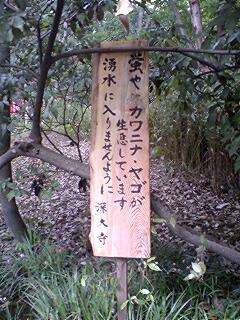 蛍や カワニナ・ヤゴが
生息しています
湧水に入りませんように
深大寺